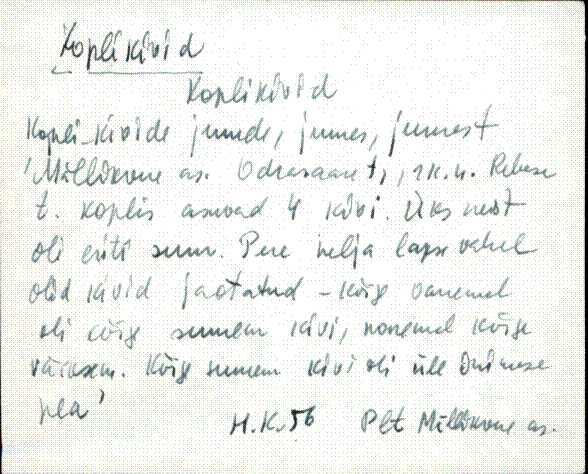 Koplikivid
Koplikivid
Kopli-kivide juude, juures, juurest
'Mällikvere as. Odrasaare t., rk.n. Rebase
t. koplis asuvad 4 kivi. Üks neist
oli eriti suur. Pere nelja lapse vahel
olid kivid jaotatud - kõige vanemal
oli kõige suurem kivi, nooremal kõige
väiksem. Kõige suurem kivi oli üle inimese
pea'
H.K. 56 Plt Mällikvere as.